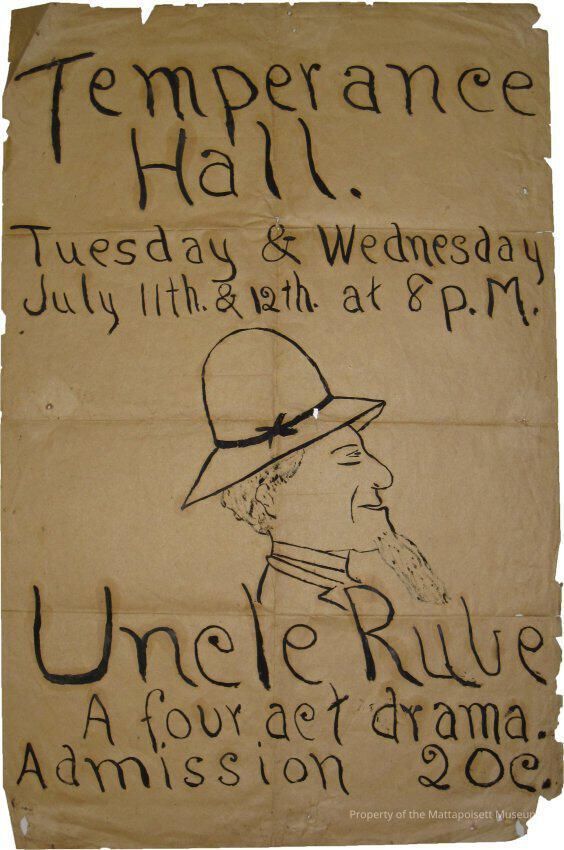 Temperance
Hall.
Tuesday & Wednesday
July 11th. & 12th. at 8 p.M.
Uncle Rube
A four act drama.
Admission 20c.
Property of the Mattapoisett Museum